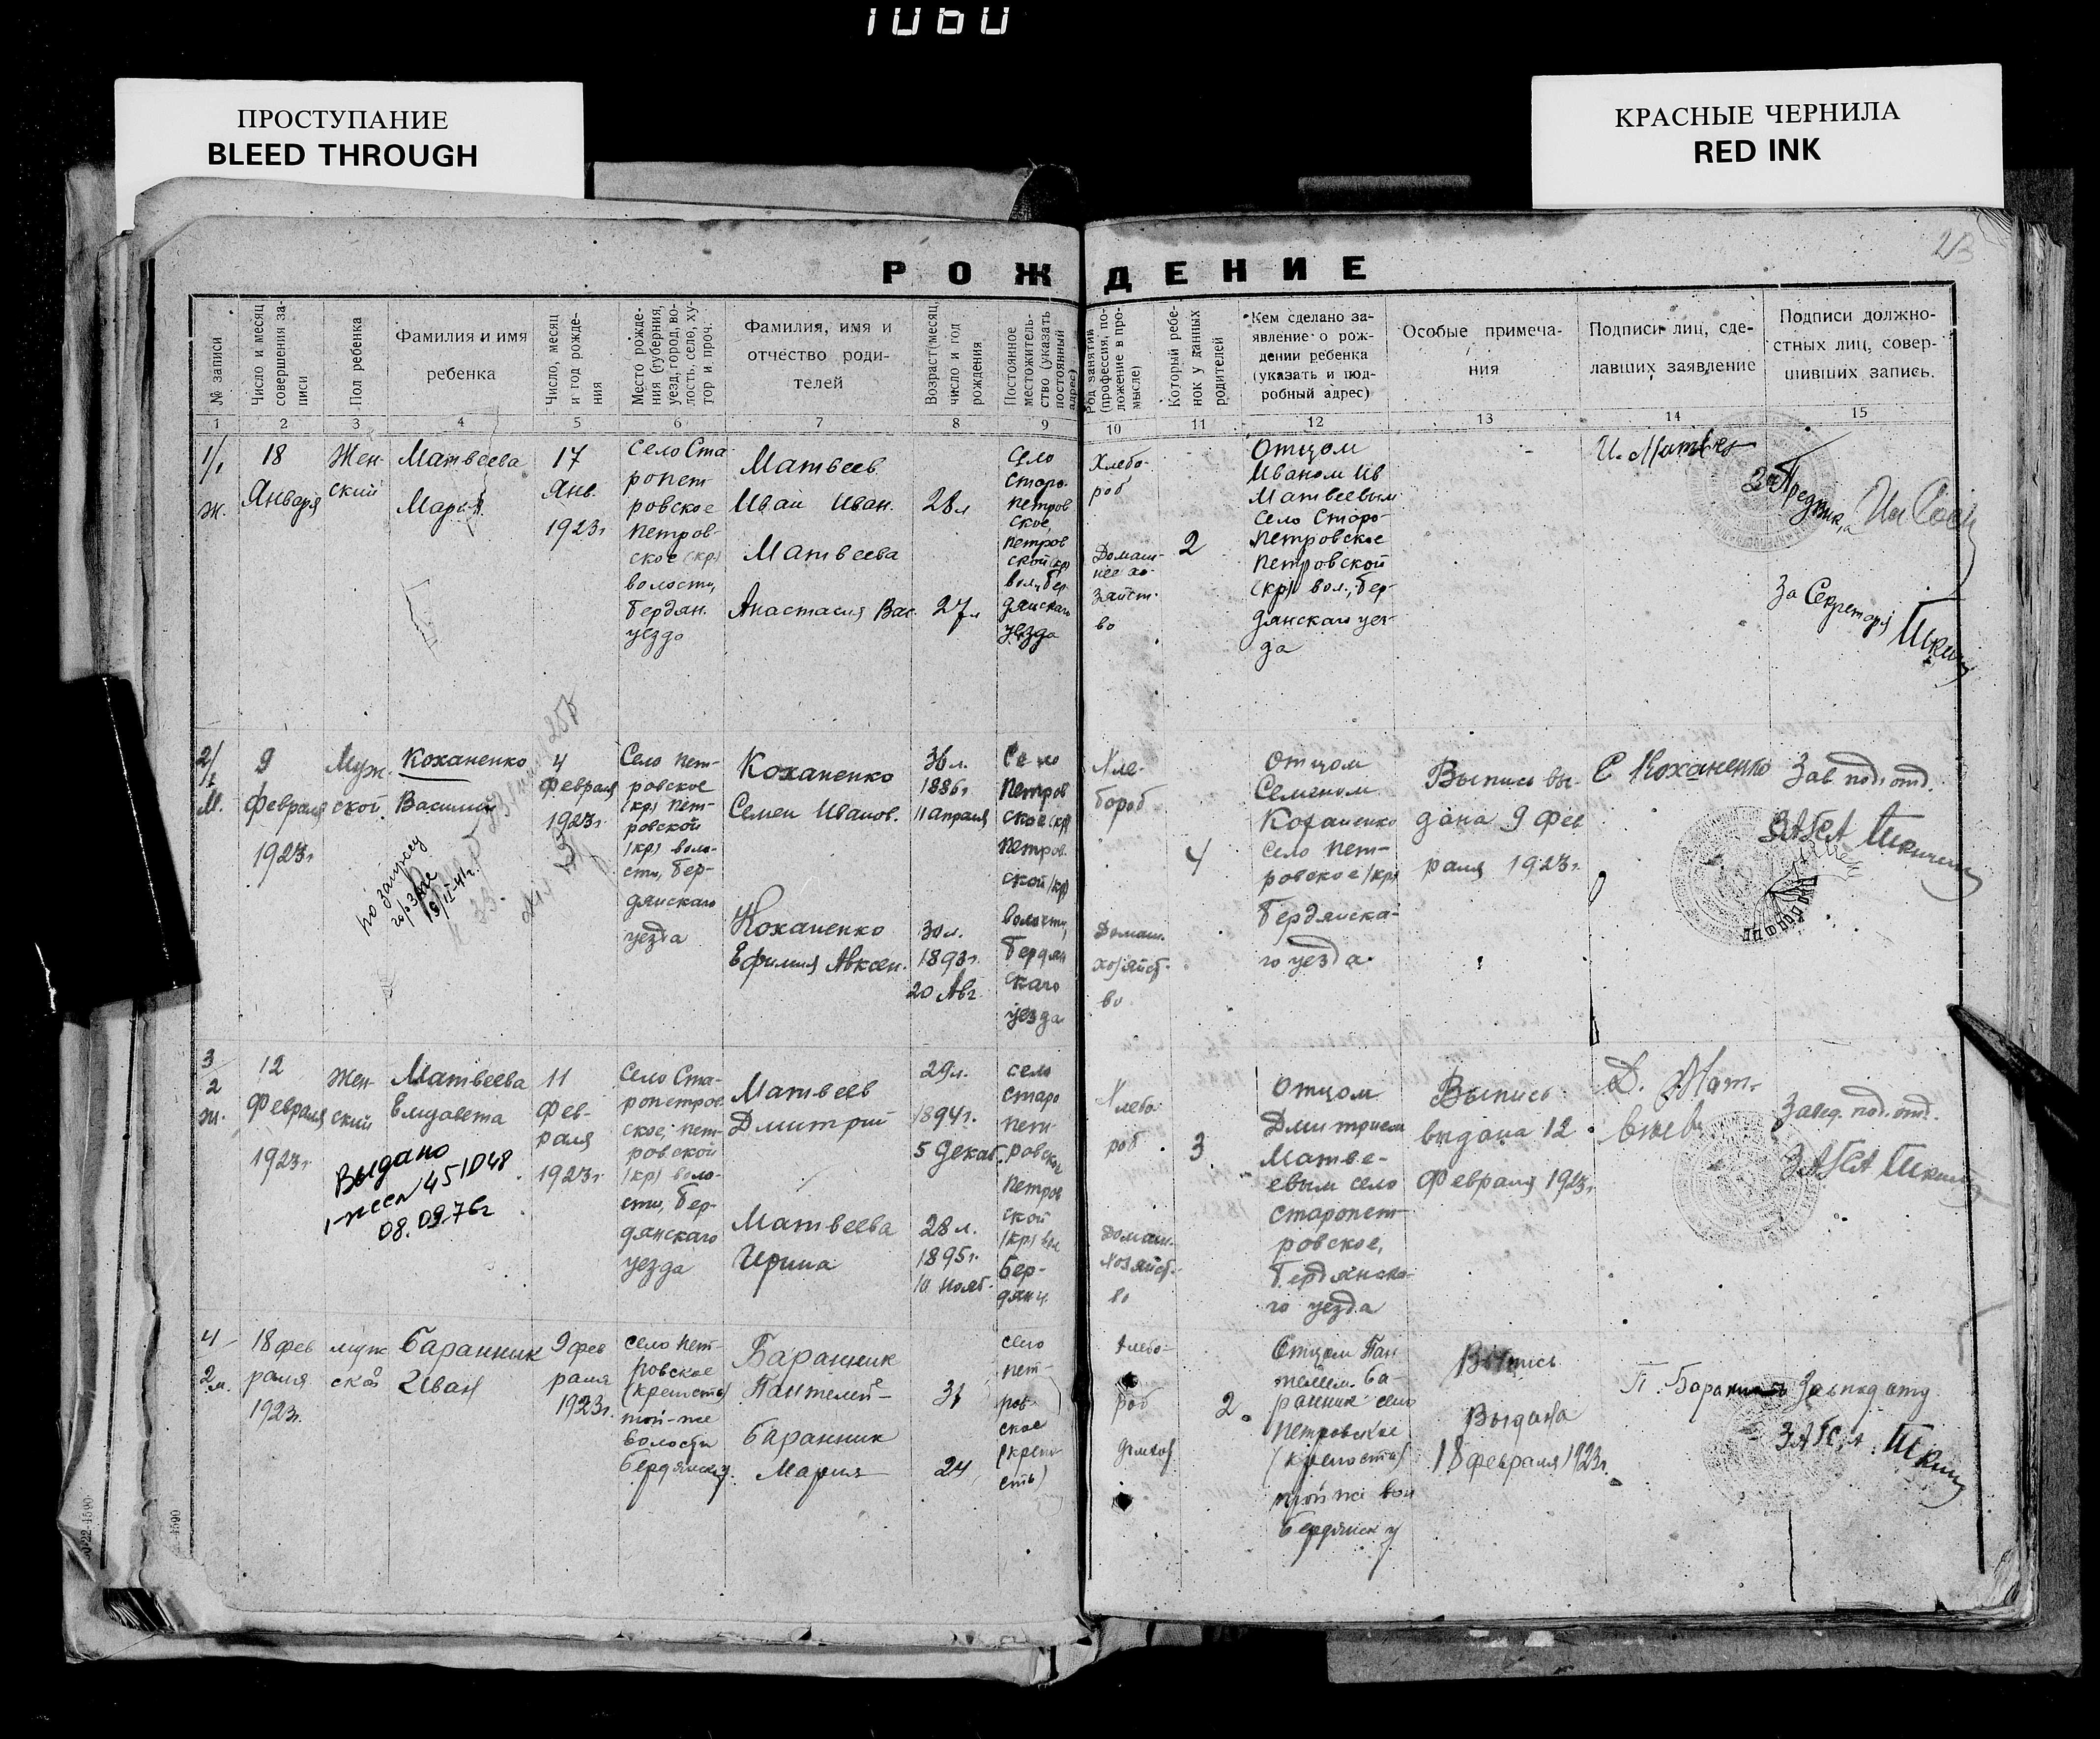 1060
ПРОСТУПАНИЕ
BLEED THROUGH
КРАСНЫЕ ЧЕРНИЛА
RED INK
РОЖДЕНИЕ
№ записи
Число и месяц
совершения за-
писи
Пол ребенка
Фамилия и имя
ребенка
Число, месяц
и год рожде-
ния
Место рожде-
ния (губерния,
уезд, город, во-
лость, село, ху-
тор и проч.
Фамилия, имя и
отчество роди-
телей
Возраст (месяц,
число и год
рождения
Постоянное
местожитель-
ство (указать
постоянный
адрес)
Род занятий
(профессия, по-
ложение в про-
мысле)
Который ребе-
нок у данных
родителей
Кем сделано за-
явление о рож-
дении ребенка
(указать и под-
робный адрес)
Особые примеча-
ния
Подписи лиц, сде-
лавших заявление
Подписи должно-
стных лиц, совер-
шивших запись.
1 2 3 4 5 6 7 8 9 10 11 12 13 14 15
1/1
ж.
18
Января
Жен-
ский
Матвеева
Мария
17
Янв.
1923г
Село Ста
ропет
ровское
Петров-
ское (кр)
волости,
Бердян.
уезда
Матвеев
Иван Иван.
Матвеева
Анастасия Вас
28л
27л
Село
Старо-
петров
ское,
Петров
ской (кр)
вол, Бер
дянскаго
уезда
Хлебо-
роб
Домаш-
нее хо-
зяйст-
во
2
Отцом
Иваном Ив
Матвеевым
Село Старо-
Петровское
Петровской
(кр) вол., Бер-
дянскаго уез-
да
За Секретаря
2/1
М.
9
Февраля
1923г
Муж-
ской.
Коханенко
Василий
по запросу
4
Февраля
1923г.
Село Пет-
ровское
(кр) Пет-
ровской
(кр) воло-
сти, Бер-
дянскаго
уезда
Коханенко
Семен Иванов.
Коханенко
Ефимия Авксен.
36л.
1886г
11 апраля
30л.
1893г.
20 Авг.
Село
Петров
ское (кр)
Петров-
ской (кр)
волости,
Бердян
скаго
уезда
Хле-
бороб
Домаш.
хозяйст-
во.
4
Отцом
Семеном
Коханенко
село Пет-
ровское (кр)
Бердянска-
го уезда.
Выпись вы-
дана 9 фев
раля 1923г.
С Коханенко
Зав. под. отд.
ЗАГСА
3
2
ж.
12
Февраля
1923г
Жен-
ский
Матвеева
Елизавета
Выдано
08.09.76г
11
Фев-
раля
1923г.
Село Ста-
ропетров
ское, Пет-
ровской
(кр) воло-
сти, Бер-
дянскаго
уезда
Матвеев
Дмитрий
Матвеева
Ирина
29л.
1894г.
5 Декаб.
28л.
1895г.
10 нояб.
село
старо
пет-
ровское
Петров
ской
(кр) вол
Бер-
дянч.
Хлебо-
роб
Домаш.
Хозяйст-
во
3
Отцом
Дмитрием
Матве-
евым село
Старопет-
ровское,
Бердянска-
го уезда
Выпись
выдана 12
Февраля 1923г
Д. Мат-
веев
Завед. под. отд.
ЗАГСА
4
2 м.
18 фев
раля
1923г.
муж
ской
Баранник
Иван
9 фев
раля
1923г.
село Пет-
ровское
(крепость)
той-же
волости
Бердянск у.
Баранник
Пантелей
Баранник
Мария
31
24
село
пет-
ров-
ское
(крепо
сть)
Хлебо-
роб
2
Отцом Пан
телеем Ба-
ранник село
Петровское
(крепость)
той же вол
Бердянск у
Выпись
Выдана
18 февраля 1923г.
П. Баранник
Зав под отд
ЗАГСА